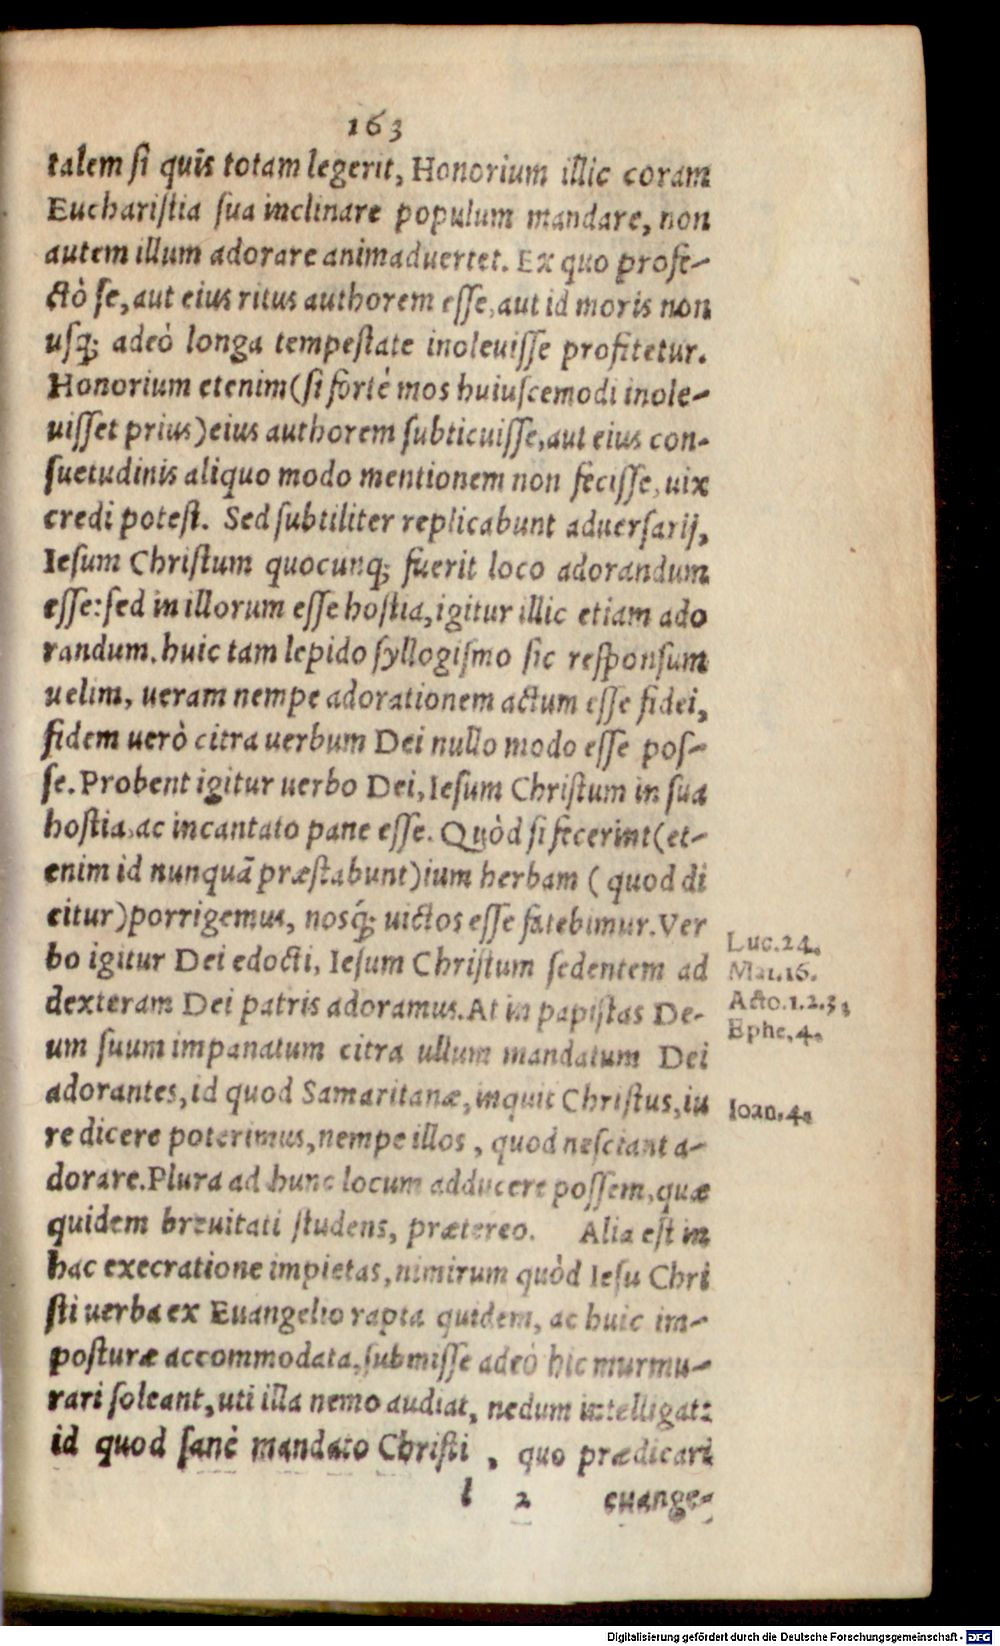 163
talem ſi quis totam legerit, Honorium illic coram
Euchariſtia ſua inclinare populum mandare, non
autem illum adorare animaduertet. Ex quo profe-
ctò ſe, aut eius ritus authorem eſſe, aut id moris non
uſq; adeò longa tempeſtate inoleuiſſe profitetur.
Honorium etenim (ſi fortè mos huiuſcemodi inole-
uiſſet prius) eius authorem ſubticuiſſe, aut eius con-
ſuetudinis aliquo modo mentionem non feciſſe, uix
credi poteſt. Sed ſubtiliter replicabunt aduerſarij,
Ieſum Chriſtum quocunq; fuerit loco adorandum
eſſe: ſed in illorum eſſe hoſtia, igitur illic etiam ado
randum. huic tam lepido ſyllogiſmo ſic reſponſum
uelim, ueram nempe adorationem actum eſſe fidei,
fidem uerò citra uerbum Dei nullo modo eſſe poſ-
ſe. Probent igitur uerbo Dei, Ieſum Chriſtum in ſua
hoſtia, ac incantato pane eſſe. Quòd ſi fecerint (et-
enim id nunquā præſtabunt) ium herbam ( quod di
citur) porrigemus, noſq́; uictos eſſe fatebimur. Ver
bo igitur Dei edocti, Ieſum Chriſtum ſedentem ad
dexteram Dei patris adoramus. At in papiſtas De-
um ſuum impanatum citra ullum mandatum Dei
adorantes, id quod Samaritanæ, inquit Chriſtus, iu
re dicere poterimus, nempe illos, quod neſciant a-
dorare. Plura ad hunc locum adducere poſſem, quæ
quidem breuitati ſtudens, prætereo. Alia eſt in
hac execratione impietas, nimirum quòd Ieſu Chri
ſti uerba ex Euangelio rapta quidem, ac huic im-
poſturæ accommodata, ſubmiſſe adeò hic murmu-
rari ſoleant, uti illa nemo audiat, nedum intelligat:
id quod ſanè mandato Chriſti, quo prædicari
l 2 euange-
Luc. 24.
Mar. 16.
Acto. 1. 2. 3.
Ephe. 4.
Ioan. 4.
Digitalisierung gefördert durch die Deutsche Forschungsgemeinschaft - DFG